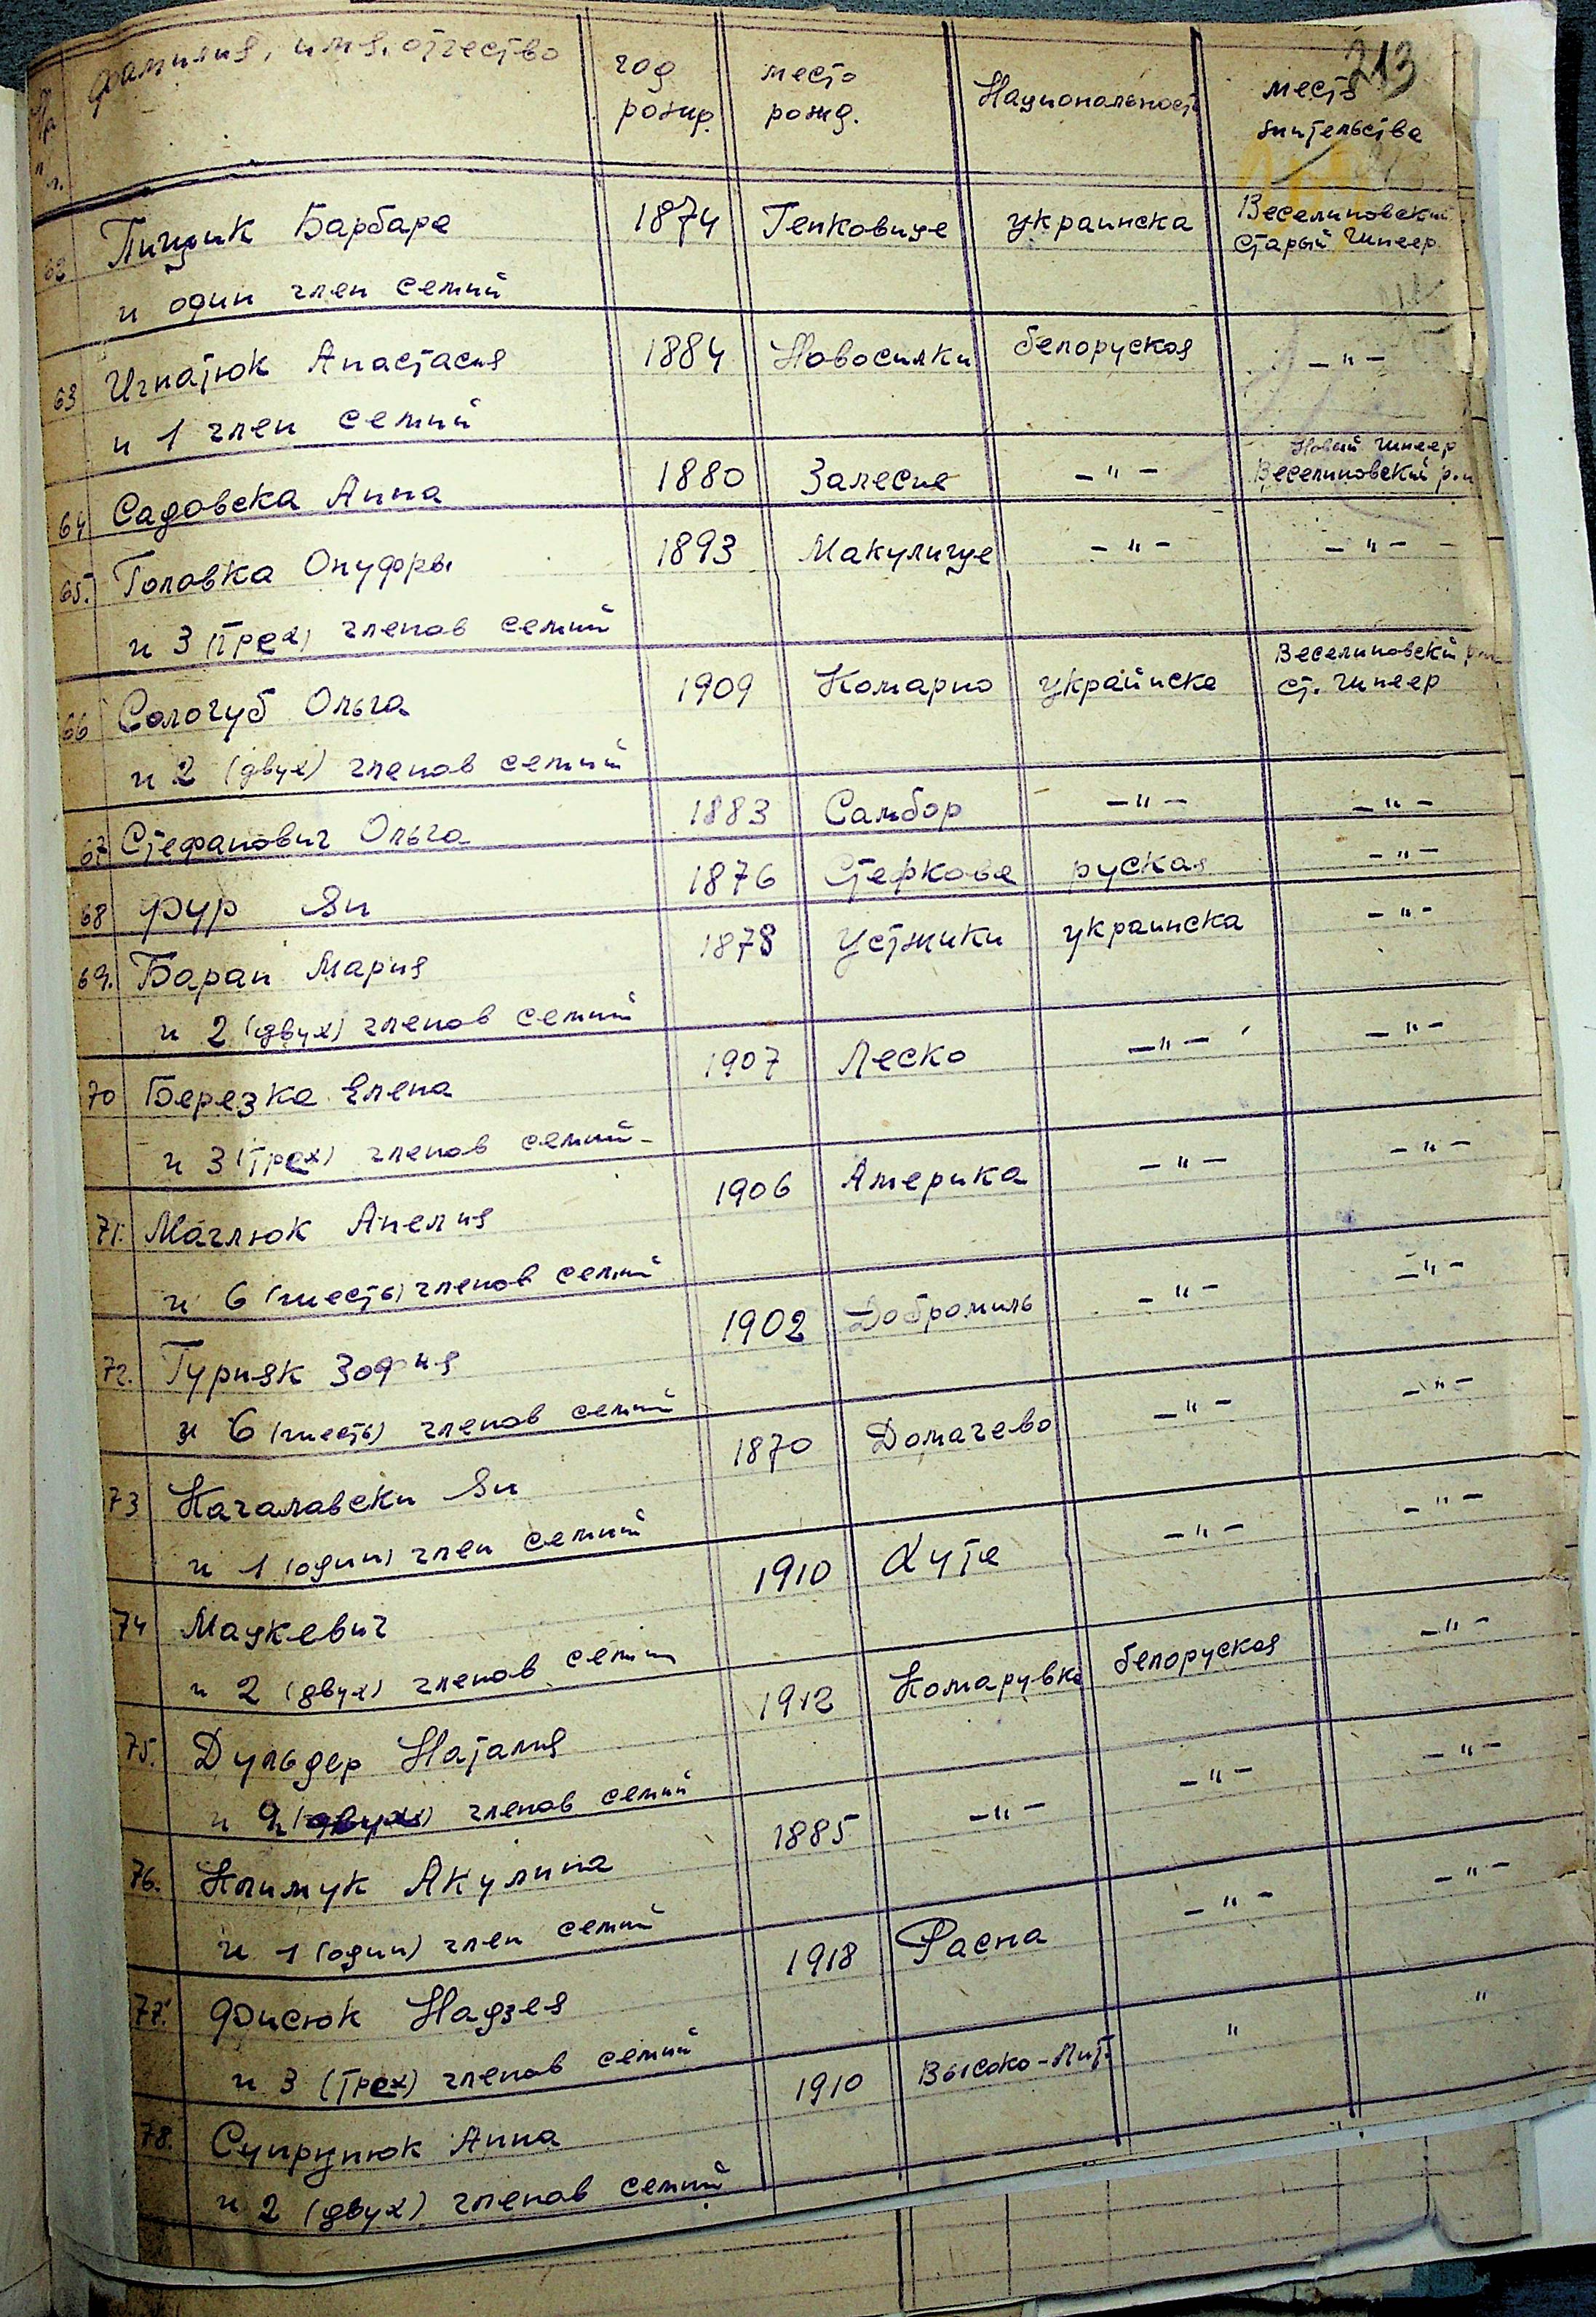 213
№ п.п. фамилия, имя, отчество год рожд. место рожд. Националность место жительства
62 Пищик Барбара 1874 Генковице украинска Веселиновский
и один член семий Старый Шпеер
63 Игнатюк Анастасия 1884 Новосилки белоруская -"-
и 1 член семий
64 Садовска Анна 1880 Залесие -"- Новый Шпеер Веселиновский р-н
65. Головка Онуфры 1893 Макулище -"- -"-
и 3 (трех) членов семий
66 Сологуб Ольга 1909 Комарно украинска Веселиновский р-н
и 2 (двух) членов семий ст. Шпеер
67 Стефанович Ольга 1883 Самбор -"- -"-
68 Фур Ян 1876 Стеркове руская -"-
69. Баран Мария 1878 Устжики украинска -"-
и 2 (двух) членов семий
70 Березка Елена 1907 Леско -"- -"-
и 3 (трех) членов семий
71. Маглюк Анелия 1906 Америка -"- -"-
и 6 (шесть) членов семий
72. Гурияк Зофия 1902 Добромиль -"- -"-
и 6 (шесть) членов семий
73 Качалавски Ян 1870 Домачево -"- -"-
и 1 (один) член семий
74 Мацкевич 1910 Луте -"- -"-
и 2 (двух) членов семии
75. Дульдер Наталия 1912 Комарувка белоруская -"-
и 2 (двух) членов семий
76. Климук Акулина 1885 -"- -"- -"-
и 1 (один) член семий
77. Фисюк Надзея 1918 Расна -"- -"-
и 3 (трех) членов семий
78. Супрунюк Анна 1910 Высоко-Лит. " "
и 2 (двух) членов семий